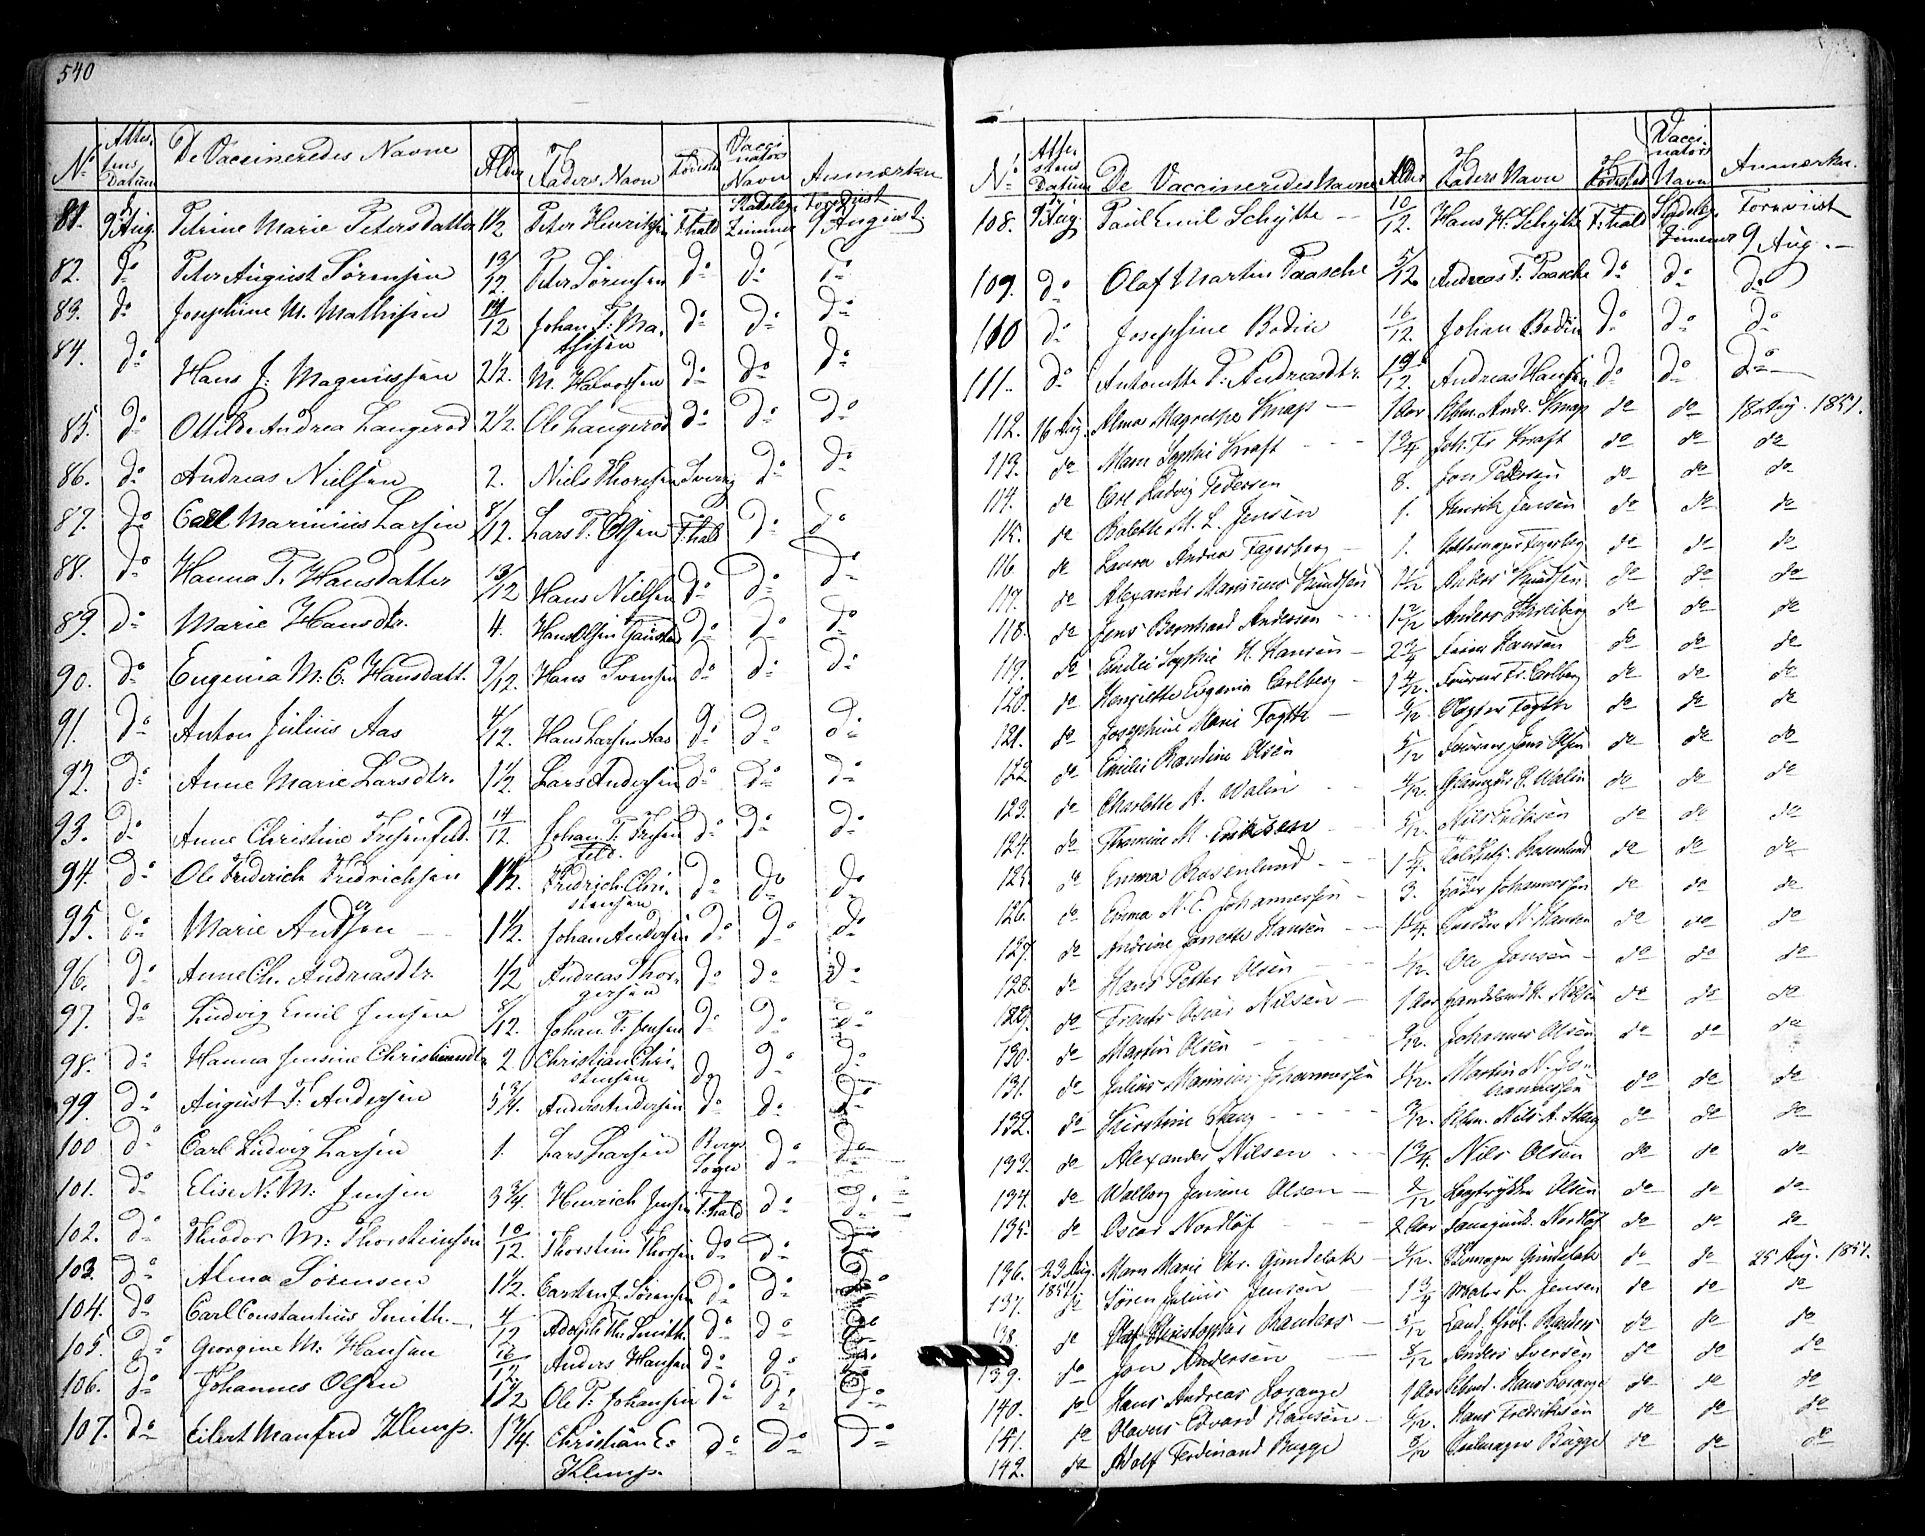 540
No Attestens Datum De Vaccineredes Navne Alder Faders Navn Fødested Vaccinators Navn Anmærkn.
81. 9 Aug. Petrine Marie Petersdatter 1½ Peter Henriksen F:hald Stadslæge Zimmer Forevist 9 August
82. do Peter August Sørensen 13/12 Peter Sørensen do do do
83. do Josephine M. Mathisen 14/12 Johan F: Mathisen do do do
84. do Hans J: Magnussen 2½. M. Halvorsen do do do
85. do Ottilde Andrea Langerød 2½. Ole Langerød do do do
86. do Andreas Nielsen 2. Niels Thoresen Sverig do do
87. do Carl Marinius Larsen 8/12. Lars P. Olsen F:hald do do
88. do Hanna T. Hansdatter 13/12 Hans Nielsen do do do
89. do Marie Hansdtr. 4. Hans Olsen do do do
90. do Eugenia M. C. Hansdatt. 9/12. Hans Svensen do do do
91. do Anton Julius Aas 4/12. Hans Larsen Aas do do do
92. do Anne Marie Larsdtr. 1½ Lars Andersen do do do
93. do Anne Christine Fresenfeld. 14/12. Johan F. Fresenfeld. do do do
94. do Ole Frederich Fredrichsen 1½. Fredrich Christensen do do do
95. do Marie Andsen 1½. Johan Andersen do do do
96. do Anne Ch. Andreasdtr. ½ Andreas Thorgersen do do do
97. do Ludvig Emil Jensen 8/12. Johan F. Jensen do do do
98. do Hanna Jensine Christiansdtr 2 Christian Christensen do do do
99. do August F: Andersen 5¾. Anders Andersen do do do
100 do Carl Ludvig Larsen 1. Lars Larsen Berge Sogn do do
101. do Elise N: M: Jensen 3¾. Henrich Jensen F:hald do do
102. do Theodor M: Thorsteinsen 10/12. Thorstein Thorsen do do do
103. do Alma Sørensen 1½. Carsten J. Sørensen do do do
104. do Carl Constantius Smith. 4/12 Adolph Th. Smith. do do do
105. do Georgine M: Hansen 16/12 Anders Hansen do do do
106. do Johannes Olsen 1½ Ole P. Johansen do do do
107. do Eilert Manfred Klemp. 1¼ Christian E: Klemp. do do do
No Attestens Datum De Vaccineredes Navne Alder Faders Navn Fødested Vaccinators Navn Anmærkn.
108. 9 Aug. Paul Emil Schytte 10/12. Hans H. Schytte F:hald Stadslæge Zimmer Forevist 9 Aug.
109. do Olaf Martin Paasche 5/12. Andreas F. Paasche do do do
110 do Josephine Bodin 16/12. Johan Bodin do do do
111. do Antonette P. Andreasdtr. 19/12. Andreas Hansen do do do
112. 16 Aug. Alma Magrethe Knap 1 Aar Andr. Knap do do 18 Aug. 1851.
113. do Maren Sophie Kraft 1¾ Joh. Fr. Kraft do do do
114. do Carl Ludvig Pedersen 8. Jon Pedersen do do do
115. do Bolette M. L. Jensen 1. Henrik Jensen do do do
116 do Laura Andrea Fagerberg 1. Fagerberg do do do
117. do Alexander Marinius Knudsen 1½ Anders Knudsen do do do
118. do Jens Bernhard Andersen 1 2/12 Anders do do do
119. do Emilie Sophie H. Hansen 2¾ Hansen do do do
120. do Henriette Eugenia Carlberg 1 4/12. Fr. Carlberg do do do
121. do Josephine Marie Fogth 9/12 Fogth do do do
122 do Emilie Raudine Olsen 5/12 Jens Olsen do do do
123. do Charlotte A. Walin 4/12. Walin do do do
124. do Thomine M. Eriksen 5/12. Nils Eriksen do do do
125. do Emma Rosenlund 1¼. Rosenlund do do do
126. do Emma N. E. Johannessen 3. Johannessen do do do
127. do Andrine Janette Hansen 1¼. N. Hansen do do do
128. do Hans Petter Olsen Ole Jonsen do do do
129. do Frants Oscar Nilsen 1 Aar Nilsen do do do
130. do Martin Olsen 9/12. Johannes Olsen do do do
131. do Julius Marinius Johannessen Martin N. Johannessen do do do
132. do Kirstine Stang 9/12. Nils A. Stang do do do
133. do Alexander Nilsen 1¾. Nils Olsen do do do
134. do Walborg Jensine Olsen 8/12 Bogtrykker Olsen do do do
135. do Oscar Nordløf 2 Aar Nordløf do do do
136. 23 Aug. 1851 Maren Marie Chr. Gundelach 9/12. Gundelach do do 25 Aug. 1851.
137. do Søren Julius Jensen 1¾ Jensen do do do
138. do Olaf Christopher Randers 3/12 Randers do do do
139. do Jon Andersen 8/12 Anders Iversen do do do
140. do Hans Andreas Lorange 1 Aar Hans Lorange do do do
141. do Olavus Edvard Hansen 6/12. Hans Fredriksen do do do
142. do Adolf Ferdinand Bugge 8/12 Bugge do do do